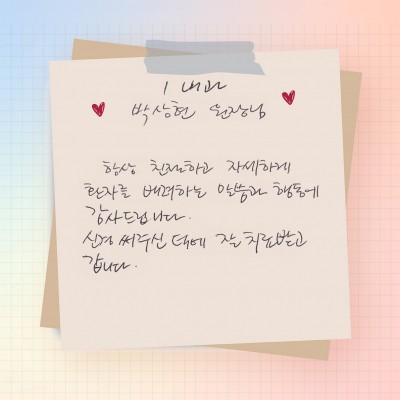 1 내과
박상현 원장님
항상 친절하고 자세하게
환자를 배려하는 말씀과 행동에
감사드립니다.
신경 써주신 덕에 잘 치료받고
갑니다.